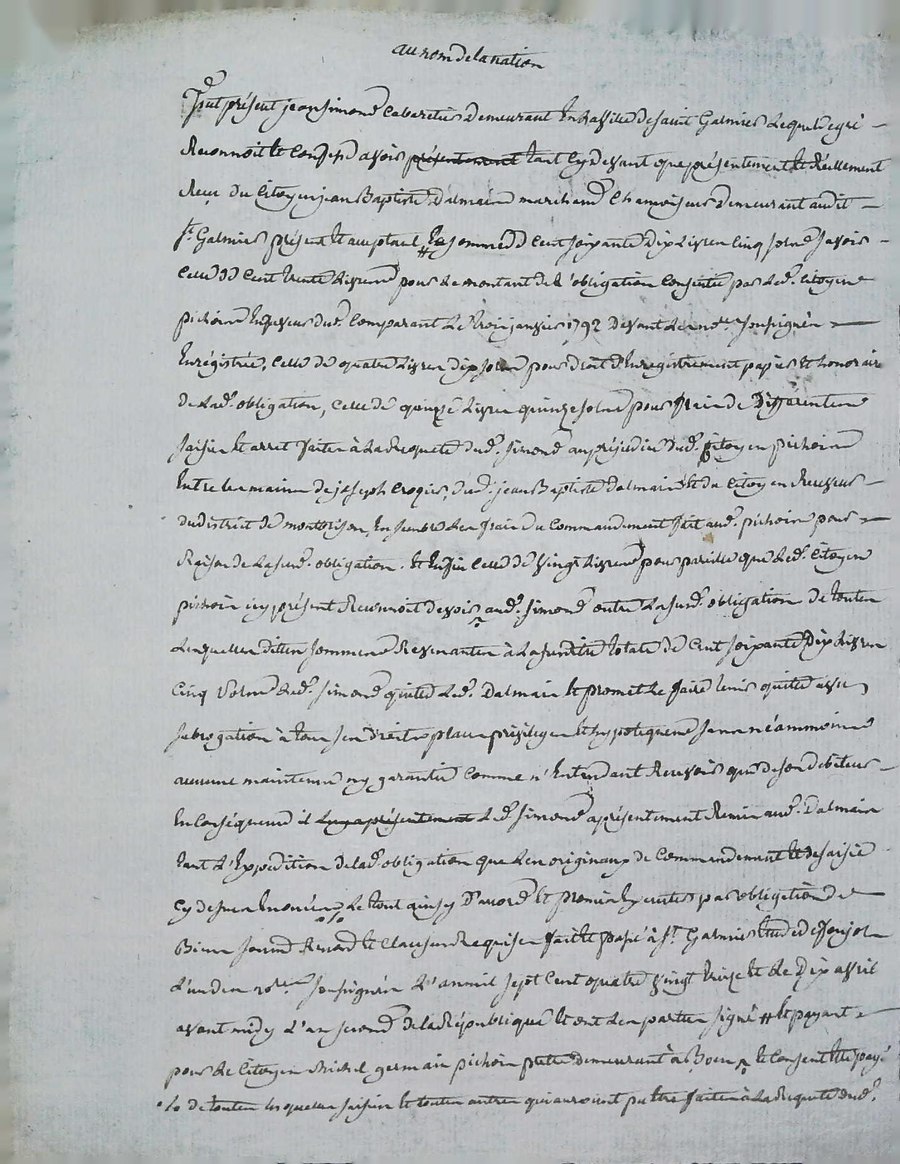 au nom de la nation
fut présent jean simond Cabaretier demeurant En La ville de saint Galmier Lequel de gré
Reconnoit et Confesse avoir présentement tant Cy devant que présentement et Réellement
Reçu du Citoyen jean Baptiste Dalmain marchand Chamoiseur demeurant audit
st. Galmier présent et acceptant # La somme de Cent soixante dix Livres Cinq sols savoir
Celle de Cent trente Livres pour Le montant de L'obligation Consentie par Led. Citoyen
pichoin En faveur dud. Comparant Le trois janvier 1792 devant Le nore. soussigné
Enrégistrée, Celle de quatre Livres dix sols pour droit d'Enregistrement papier et honoraire
de Lad. obligation, Celle de quinze Livres quinze sols pour frais de Differentes
saisies et arret faites à La Requete dud. simond au préjudice dud. Citoyen pichoin
Entre Les mains de joseph Croqier, dud. jean Baptiste Dalmain et du Citoyen Receveur
du district de montbrison, En semble Les frais du Commandement fait aud. pichoin pour
Raison de La sud. obligation. et Enfin Celle de vingt Livres pour pareille que Led. Citoyen
pichoin icy présent Reconnoit devoir aud. simond outre La sud. obligation de toutes
Lesquelles dittes sommes Revenantes à La susditte totale de Cent soixante Dix Livres
Cinq sols Led. simond quitte Led. Dalmain et promet Le faire tenir quitte avec
subrogation à tous ses droits place privileges et hypoteques sans néammoins
aucune maintenue ny garantie Comme n'Entendant Recevoir que de son debiteur
En Conséquence il Luy a présentement Led. simond a présentement Remis aud. Dalmain
tant L'Expédition de lad. obligation que Les originaux de Commandement et de saisie
Cy dessus Enoncées o/o Le tout ainsy D'accord et promis Executer par obligation de
Biens soumis Renond et Clauses Requises fait et passé à st. Galmier Etude de
L'un des nores. soussignés L'an mil sept Cent quatre vingt treize et Le Dix avril
avant midy L'an second de la République et ont Les parties signé # et payant
pour Le Citoyen Michel germain pichoin pretre demeurant à Boen et Consentte payé
o/o de toutes lesquelles saisies et toutes autres qui auroient pu Etre faites à La Requete dud.